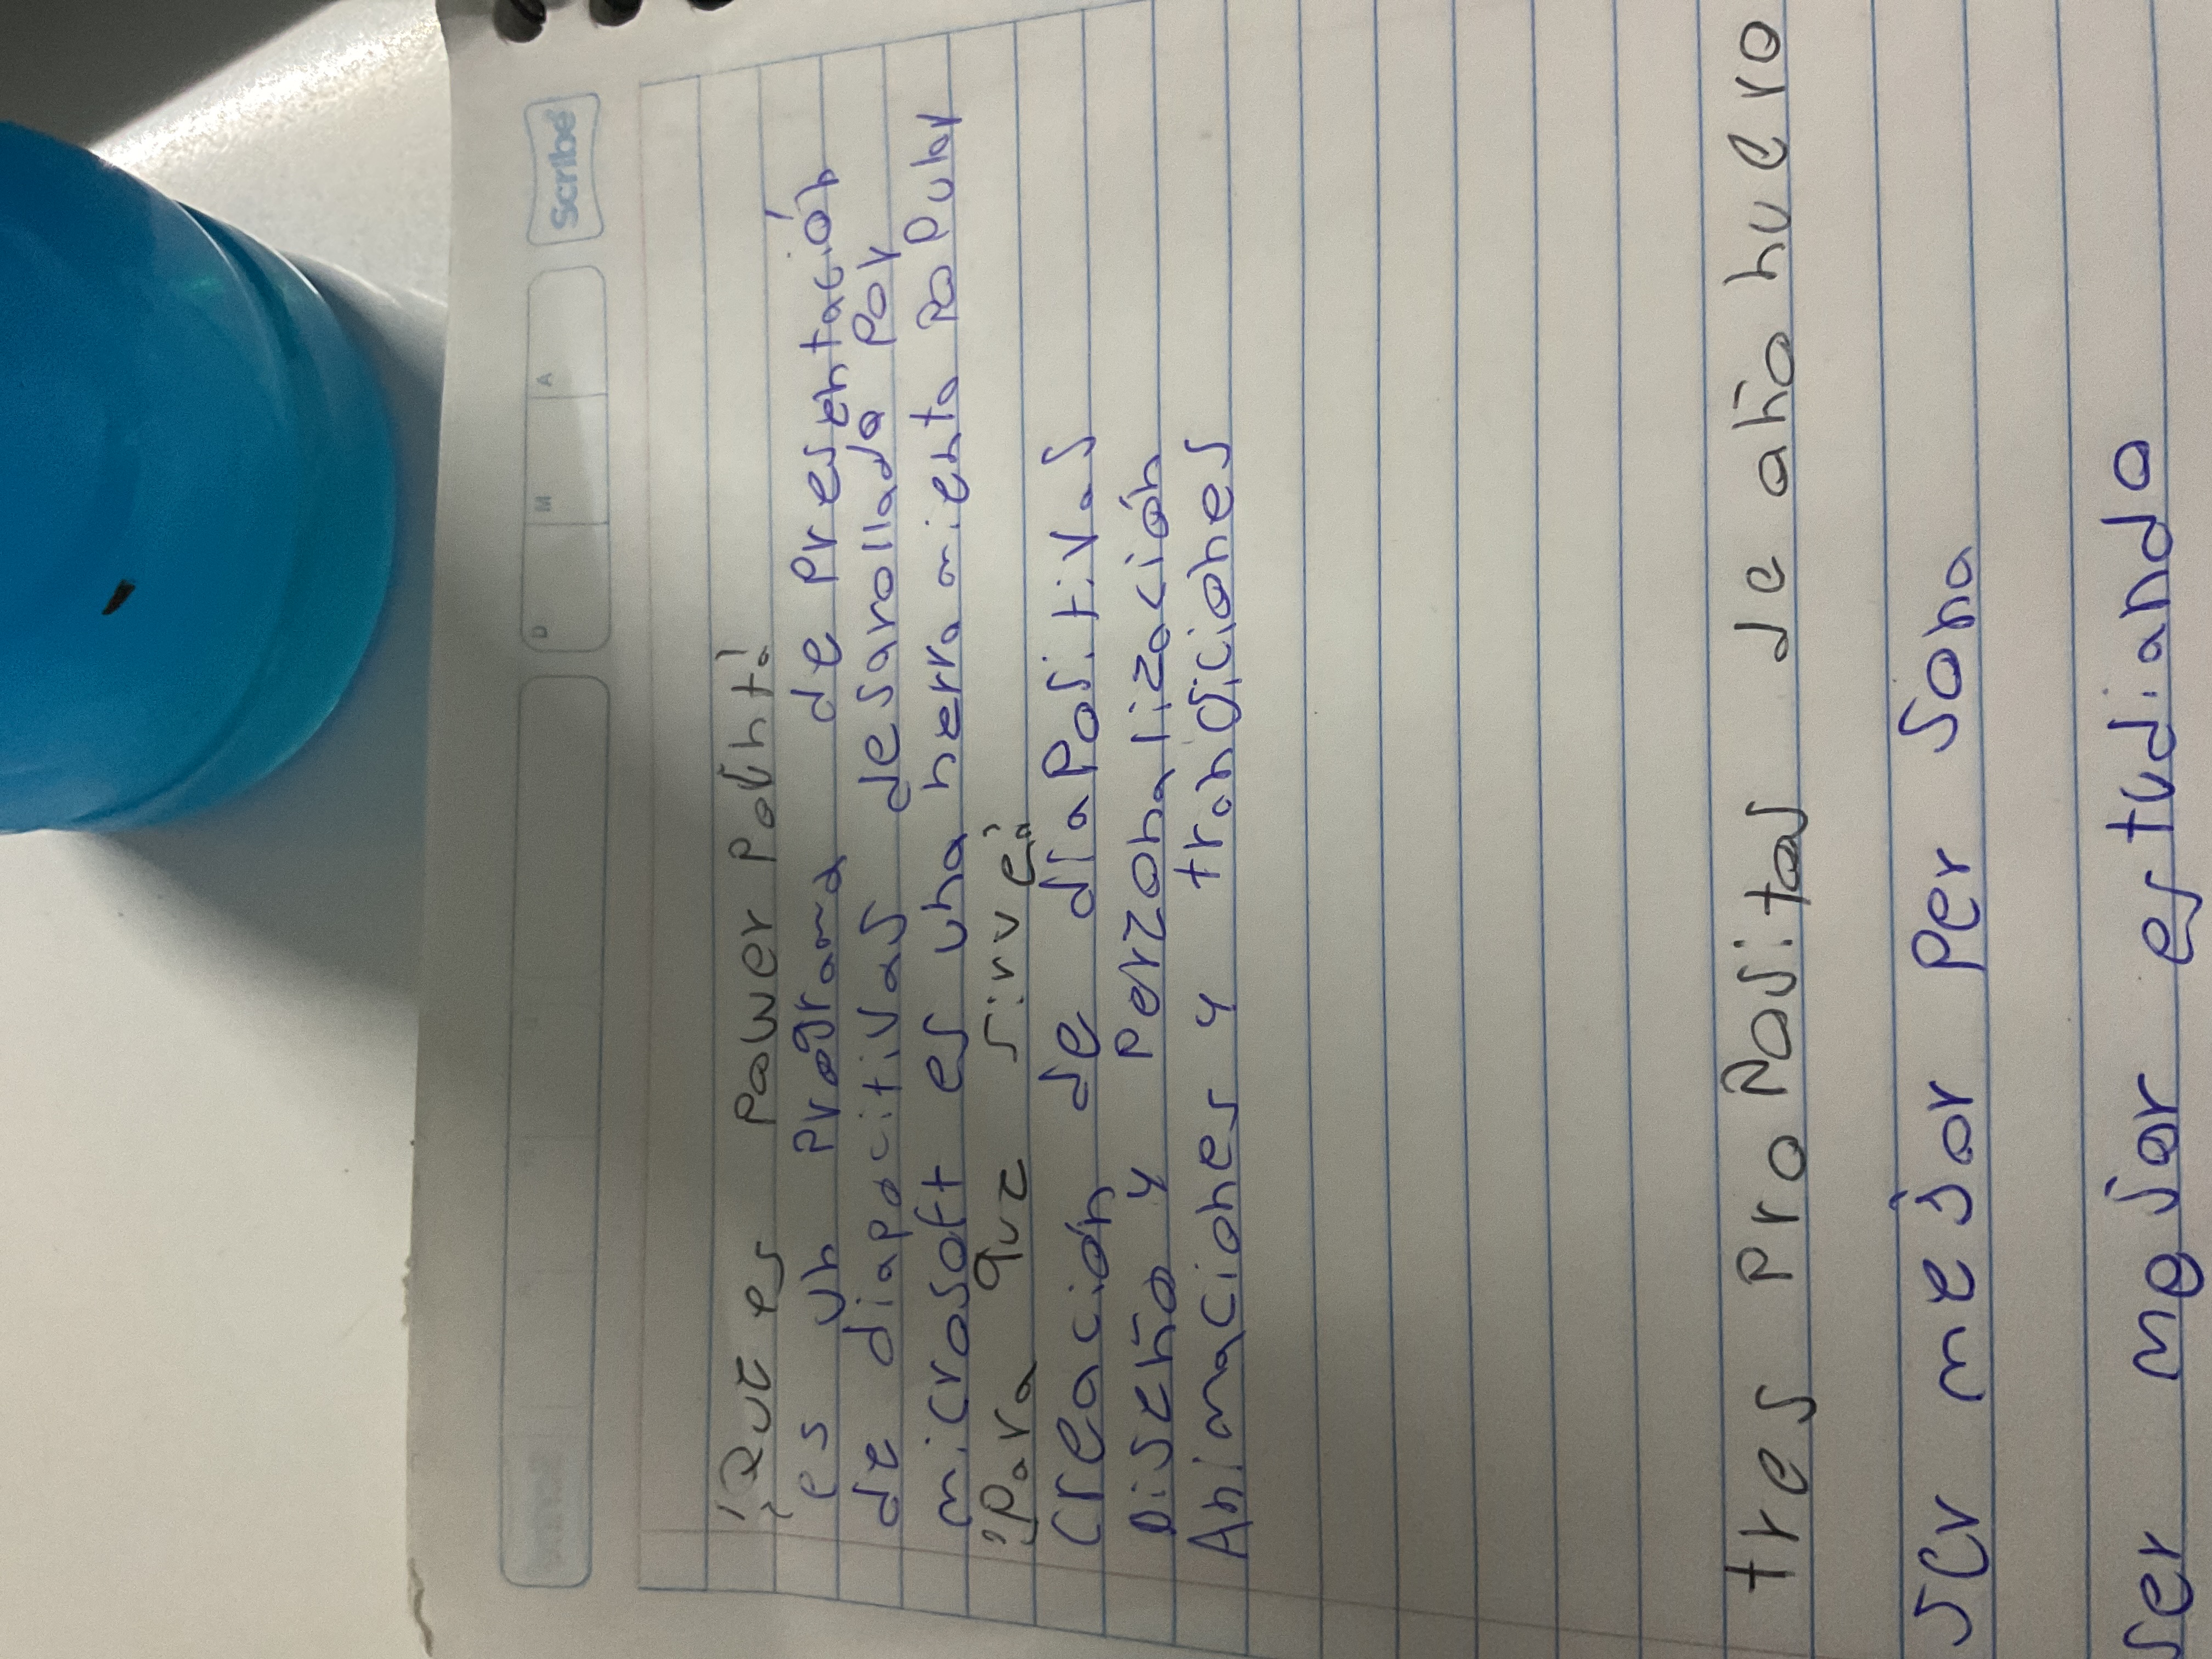 Scribe
D M A
¿Que es Power Point?
es un programa de Presentación
de diapocitivas desarollada Por
microsoft es una herramienta Popular
¿Para que sirve?
Creación de diaPositivas
Diseño y Perzonalización
Animaciones y transiciones
tres ProPositos de año nuevo
Ser mejor Persona
Ser mejor estudiando